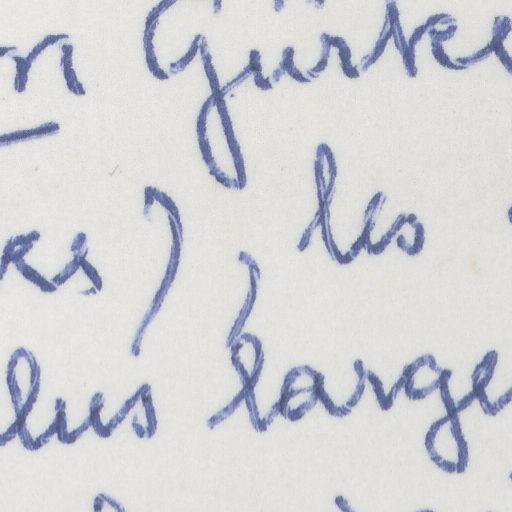 n Gürke
es), les
lus large